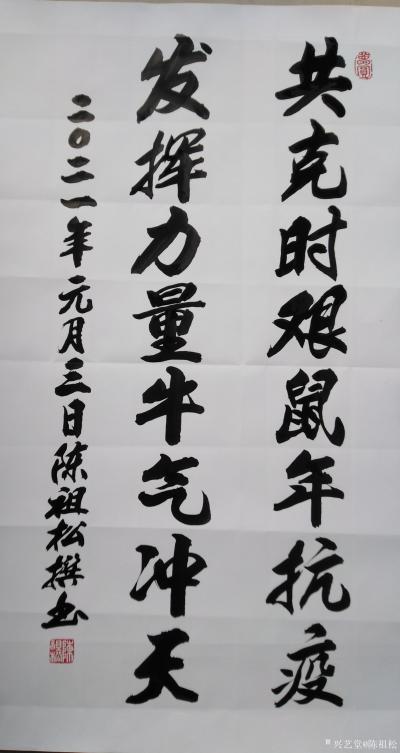 共克时艰鼠年抗疫
发挥力量牛气冲天
二〇二一年元月三日陈祖松撰书
兴艺堂@陈祖松